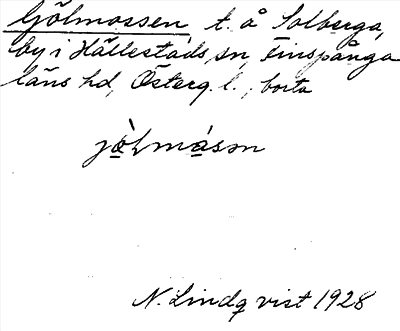 Gjölmossen, t. å Solberga,
by i Hällestads sn, Finspånga
läns hd, Österg. l. ; borta
jòlmásən
N. Lindqvist 1928